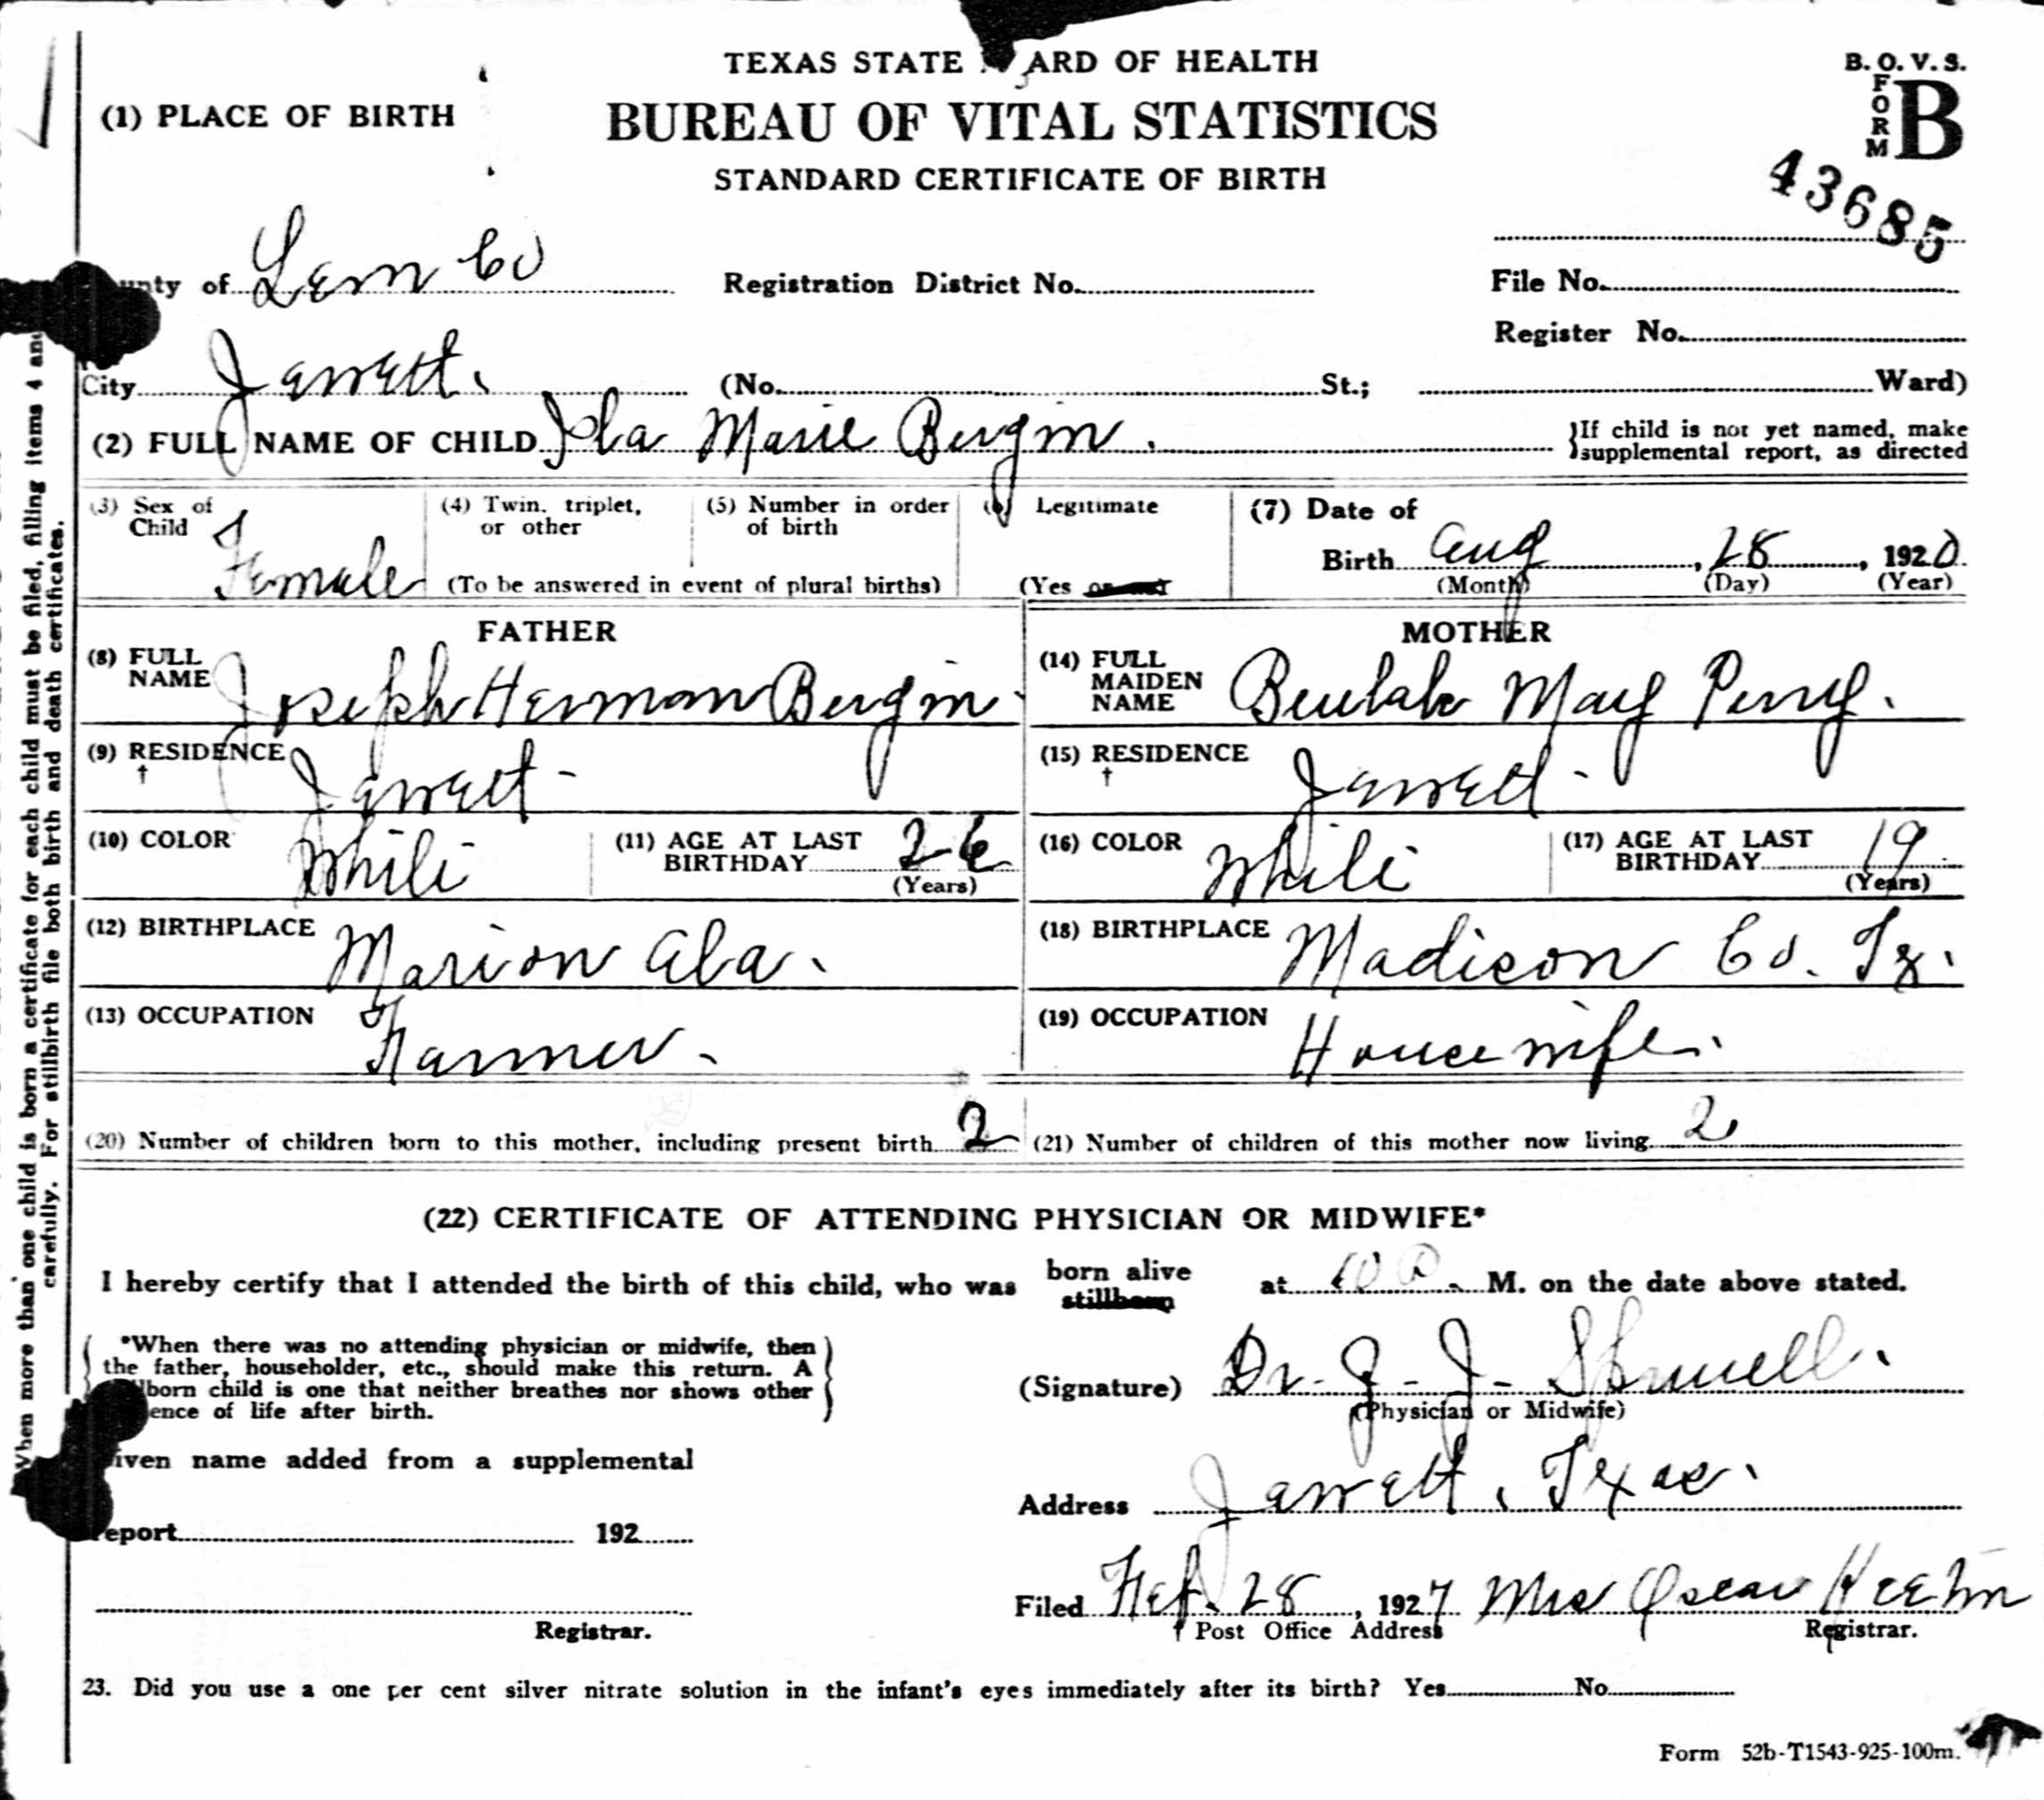 TEXAS STATE ARD OF HEALTH
BUREAU OF VITAL STATISTICS
STANDARD CERTIFICATE OF BIRTH
B. O. V. S.
FORM B
43685
(1) PLACE OF BIRTH
unty of Leon Co Registration District No. File No.
Register No.
City Jewett. (No. St.; Ward)
(2) FULL NAME OF CHILD Ila Marie Burgin. {If child is not yet named, make
supplemental report, as directed
(3) Sex of Child Female
(4) Twin, triplet, or other
(5) Number in order of birth
(To be answered in event of plural births)
(6) Legitimate
(Yes or not
(7) Date of
Birth Aug, 28, 1920
(Month) (Day) (Year)
FATHER
(8) FULL NAME Joseph Herman Burgin
(9) RESIDENCE † Jewett-
(10) COLOR White (11) AGE AT LAST BIRTHDAY 26 (Years)
(12) BIRTHPLACE Marion Ala.
(13) OCCUPATION Farmer.
MOTHER
(14) FULL MAIDEN NAME Beulah May Perry.
(15) RESIDENCE † Jewett.
(16) COLOR White (17) AGE AT LAST BIRTHDAY 19 (Years)
(18) BIRTHPLACE Madison Co. Tx.
(19) OCCUPATION Housewife.
(20) Number of children born to this mother, including present birth 2 (21) Number of children of this mother now living 2
(22) CERTIFICATE OF ATTENDING PHYSICIAN OR MIDWIFE*
I hereby certify that I attended the birth of this child, who was born alive stillborn at 10 M. on the date above stated.
*When there was no attending physician or midwife, then
the father, householder, etc., should make this return. A
born child is one that neither breathes nor shows other
ence of life after birth.
(Signature) Dr. J. J.
(Physician or Midwife)
iven name added from a supplemental
report 192
Registrar.
Address Jewett, Texas.
Filed 28, 1927 Mrs Oscar
† Post Office Address Registrar.
23. Did you use a one per cent silver nitrate solution in the infant's eyes immediately after its birth? Yes No
Form 52b-T1543-925-100m.
When more than one child is born a certificate for each child must be filed, filling items 4 and
carefully. For stillbirth file both birth and death certificates.